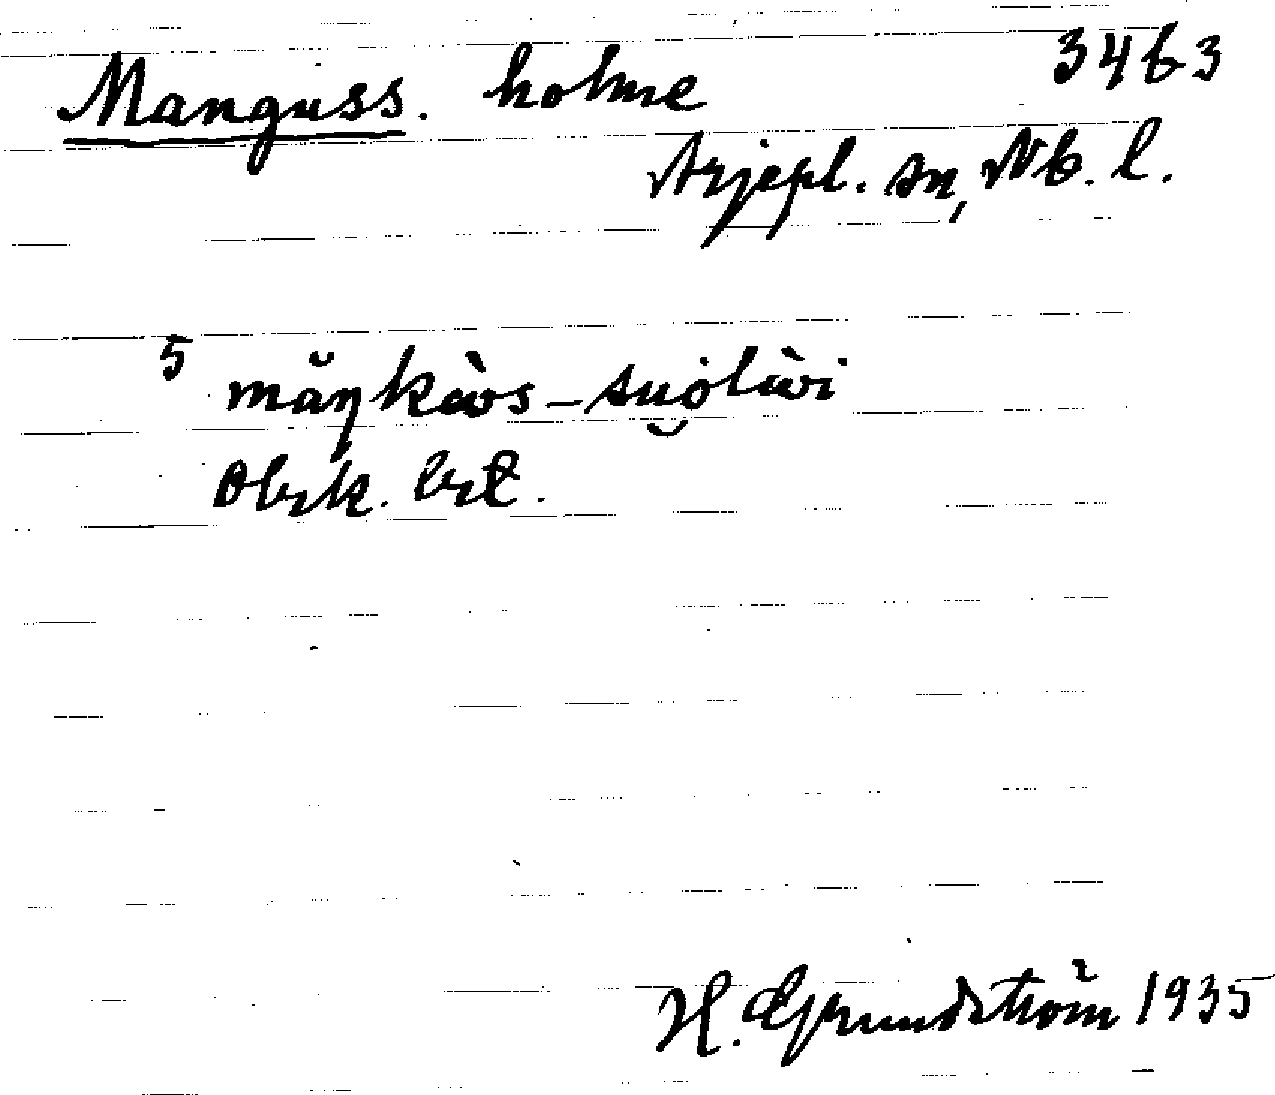 Manguss. holme 3463
Arjepl. sn, Nb. l.
5 măŋkàvs-suo̯làvi
Obek. bet.
H. Grundström 1935